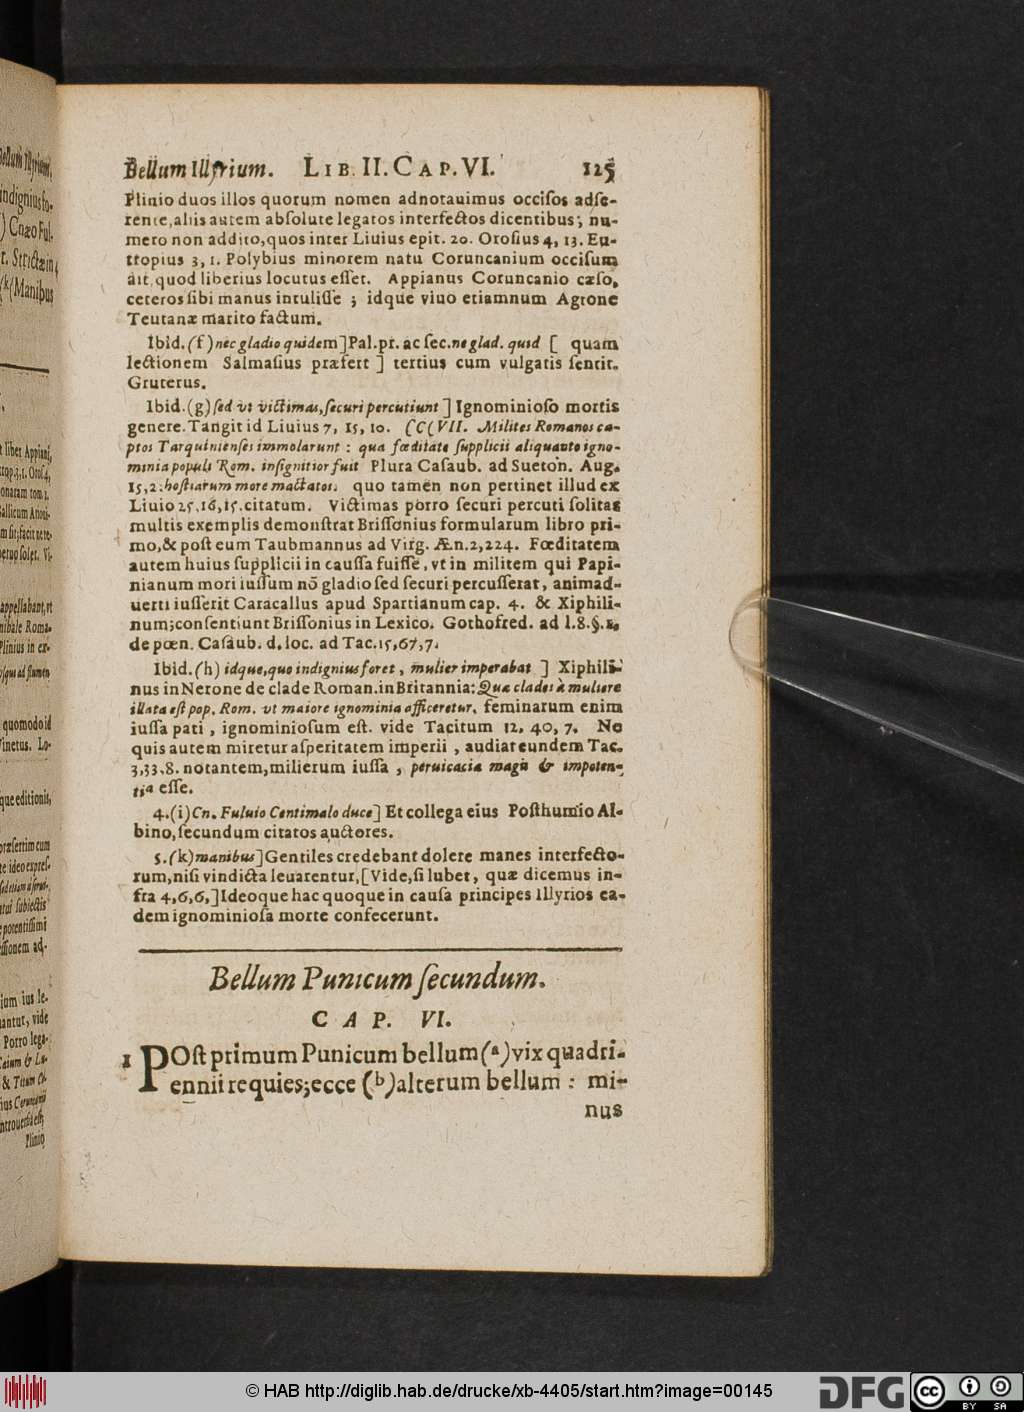 Bellum Illyrium. LIB. II. CAP. VI. 125
Plinio duos illos quorum nomen adnotauimus occiſos adſe-
rente, aliis autem abſolute legatos interfectos dicentibus, nu-
mero non addito, quos inter Liuius epit. 20. Oroſius 4, 13. Eu-
tropius 3, 1. Polybius minorem natu Coruncanium occiſum
ait, quod liberius locutus eſſet. Appianus Coruncanio cæſo,
ceteros ſibi manus intuliſſe ; idque viuo etiamnum Agrone
Teutanæ marito factum.
Ibid. (f) nec gladio quidem] Pal. pr. ac ſec. ne glad. quid [ quam
lectionem Salmaſius præfert ] tertius cum vulgatis ſentit.
Gruterus.
Ibid. (g) ſed vt victimas, ſecuri percutiunt ] Ignominioſo mortis
genere. Tangit id Liuius 7, 15, 10. CCCVII. Milites Romanos ca-
ptos Tarquinienſes immolarunt : qua fœditate ſupplicii aliquanto igno-
minia populi Rom. inſignitior fuit Plura Caſaub. ad Sueton. Aug.
15, 2. hoſtiarum more mactatos. quo tamen non pertinet illud ex
Liuio 25, 16, 15. citatum. Victimas porro ſecuri percuti ſolitas
multis exemplis demonſtrat Briſſonius formularum libro pri-
mo, & poſt eum Taubmannus ad Virg. Æn. 2, 224. Fœditatem
autem huius ſupplicii in cauſſa fuiſſe, vt in militem qui Papi-
nianum mori iuſſum nõ gladio ſed ſecuri percuſſerat, animad-
uerti iuſſerit Caracallus apud Spartianum cap. 4. & Xiphili-
num; conſentiunt Briſſonius in Lexico. Gothofred. ad l. 8. §. 1.
de pœn. Caſaub. d. loc. ad Tac. 15, 67, 7.
Ibid. (h) idque, quo indignius foret, mulier imperabat ] Xiphili-
nus in Nerone de clade Roman. in Britannia: Quæ clades à muliere
illata eſt pop. Rom. vt maiore ignominia afficeretur. feminarum enim
iuſſa pati, ignominioſum eſt. vide Tacitum 12, 40, 7. Ne
quis autem miretur aſperitatem imperii, audiat eundem Tac.
3, 33, 8. notantem, mulierum iuſſa, peruicacia magis & impoten-
tia eſſe.
4. (i) Cn. Fuluio Centimalo duce] Et collega eius Poſthumio Al-
bino, ſecundum citatos auctores.
5. (k) manibus] Gentiles credebant dolere manes interfecto-
rum, niſi vindicta leuarentur, [Vide, ſi lubet, quæ dicemus in-
fra 4, 6, 6,] Ideoque hac quoque in cauſa principes Illyrios ea-
dem ignominioſa morte confecerunt.
Bellum Punicum ſecundum.
CAP. VI.
1 POſt primum Punicum bellum (a) vix quadri-
ennii requies; ecce (b) alterum bellum : mi-
nus
© HAB http://diglib.hab.de/drucke/xb-4405/start.htm?image=00145
DFG
CC BY SA